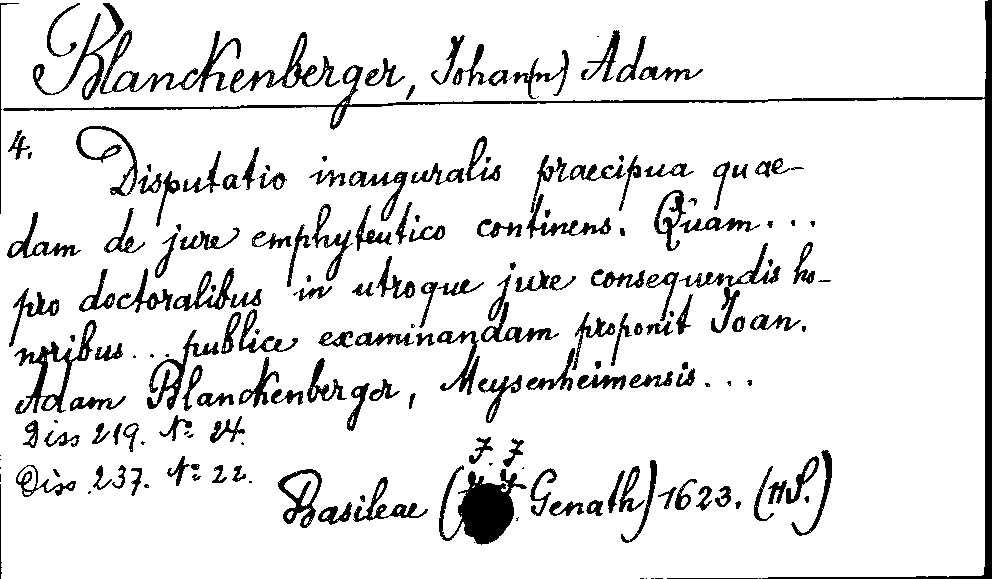 Blanckenberger, Johan(n) Adam
4. Disputatio inauguralis praecipua quae-
dam de jure emphyteutico continens. Quam...
pro doctoralibus in utroque jure consequendis ho-
noribus... publice examinandam proponit Joan.
Adam Blanckenberger, Meysenheimensis...
Diss 219. No 24.
Diss 237. No 22.
J. J.
Basileae (Genath) 1623. (4°.)